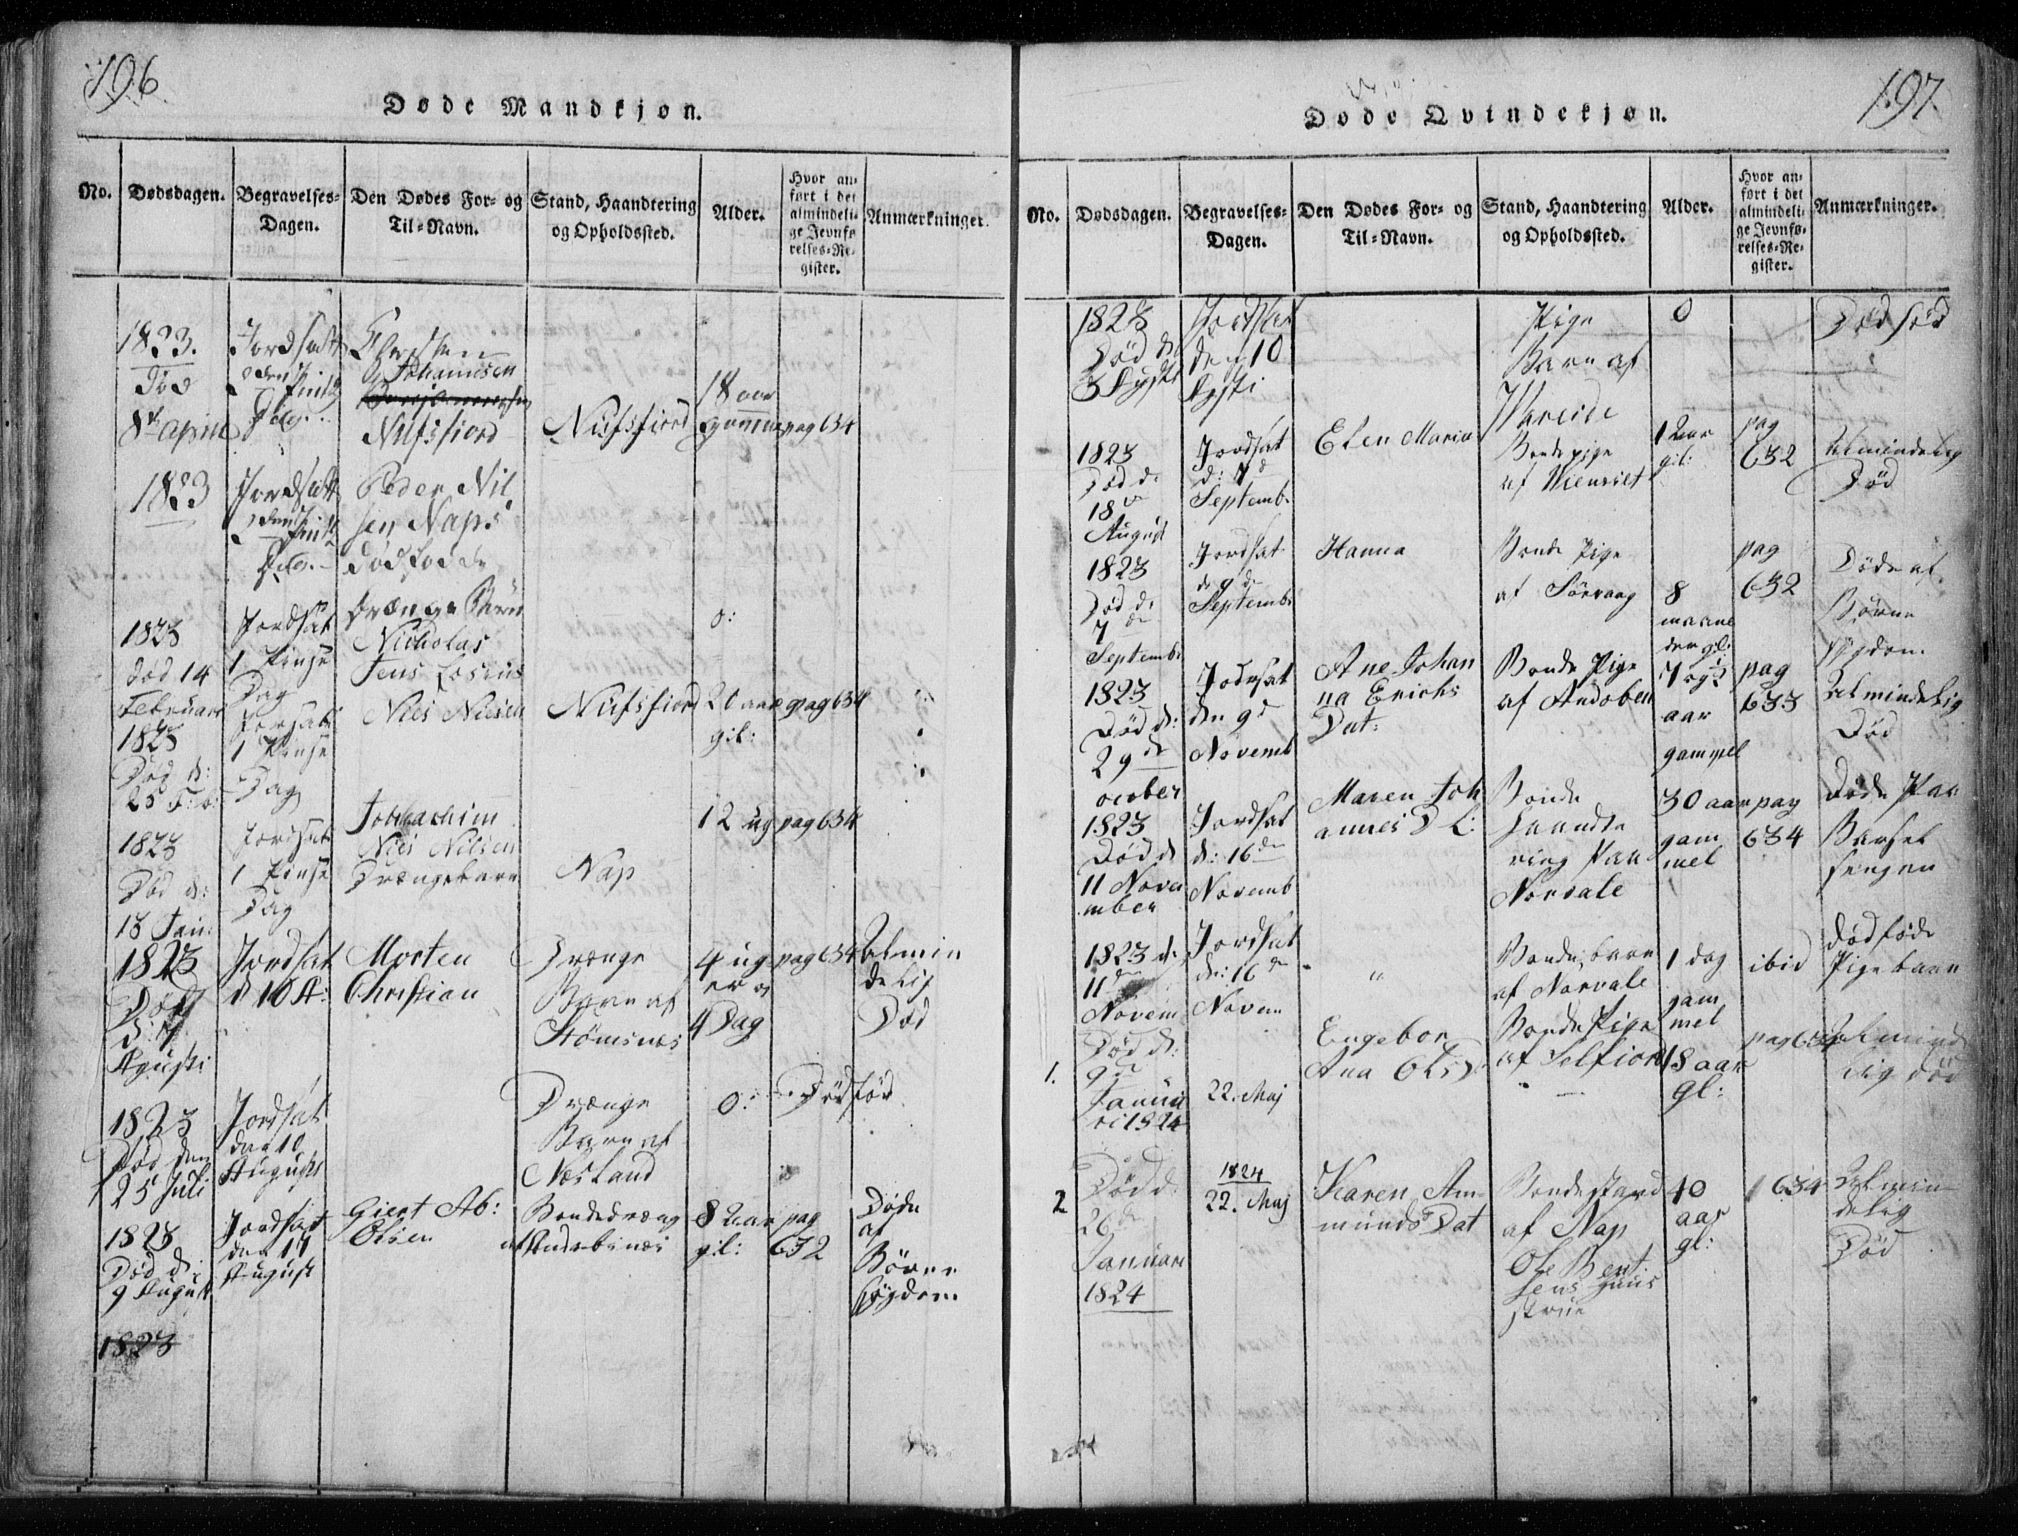 196
Døde Mandkjøn.
No. Dødsdagen. Begravelses-Dagen. Den Dødes For- og Til-Navn. Stand, Haandtering og Opholdssted. Alder. Hvor anført i det almindelige Jevnførelses-Register. Anmærkninger.
1823.
Død
8de April
Jordsatt
Johannesen
Nufsfiord
Nufsfiord
18 aar
pag 634
1823
Jordsatt
Peder Nil
sen Naps
dødfødde
Drænge Barn
1823
død 14
Februar
Jordsat
1 Pinse
Dag
Nicholas
Jens
0:
1823
Død d:
25 Feb:
1 Pinse
Dag
Niels Nielsen
Nufsfiord
20 aar
gil:
pag 634
1823
Død d:
18 Jan:
Jordsat
1 Pinse
Dag
Jochachim
Niels Nilsen
Drængebarn
Nap
12 ug
pag 634
1823
Død
d: 7
Agusti
Jordsat
d 10 A:
Morten
Christian
Drænge
Barn af
Stømsnes
4 ug
er og
4 Dag
pag 634
Almin
delig
Død
1823
Død den
25 Juli
Jordsat
den 10
Augusti
Drænge
Barn af
Nesland
0:
Dødfød
1823
Død d:
9 August
Jordsat
den 11
August
Giert Ab:
Olsen
Bondedræng
8 Aar
gil:
pag
632
Døde
af
Børne
sygdom
1823
197
Døde Qvindekjøn.
No. Dødsdagen. Begravelses-Dagen. Den Dødes For- og Til-Navn. Stand, Haandtering og Opholdssted. Alder. Hvor anført i det almindelige Jevnførelses-Register. Anmærkninger.
1823
Død d
3 Agusti
Jordsat
den 10
Agsti
Pige
Barn af
Wareide
0
Død fød
1823
Død d:
18de
August
Jordsat
d: 7d
Septemb:
Elen Maria
Bonde pige
af
1 Aar
gil:
pag
632
Almindelig
Død
1823
Død d:
7de
Septemb:
Jordsat
d 9de
Septemb:
Hanna
Bonde Pige
af Sørvaag
8
maane
der gl:
pag
632
Døde af
Børne
sygdom
1823
Død d:
29de
October
Jordsat
den 9d
Novemb
Ane Johan
na Erichs
Dat:
Bonde Pige
af Andoben
7 og ½
aar
gammel
pag
633
Almindelig
Død
1823
Død d
11 Novem
mber
Jordsat
d: 16de
Novemb
Maren Joh
annes D L:
Bonde
haandte
ring Paa
Norvale
30 aar
gam
mel
pag
634
Døde Paa
Barsel
sengen
1823 d:
11de
Novem
Jordsat
d: 16de
Novem
"
Bonde barn
af Norvale
1 dag
gam
mel
ibid
dødføde
Pigebarn
1.
Død d:
9de
Januu
ri 1824
22. Maj
Engebor
Ana Ols D.
Bonde Pige
af Selfiord
18 aar
gl:
pag 634
Almind
elig død
2
Død d:
26de
Januari
1824
1824
22. Maj
Karen Am-
munds Dat
Bondestand
af Nap
Ole Bent
sens Huus
strue
40
aar
gl:
634
Almin
delig
Død